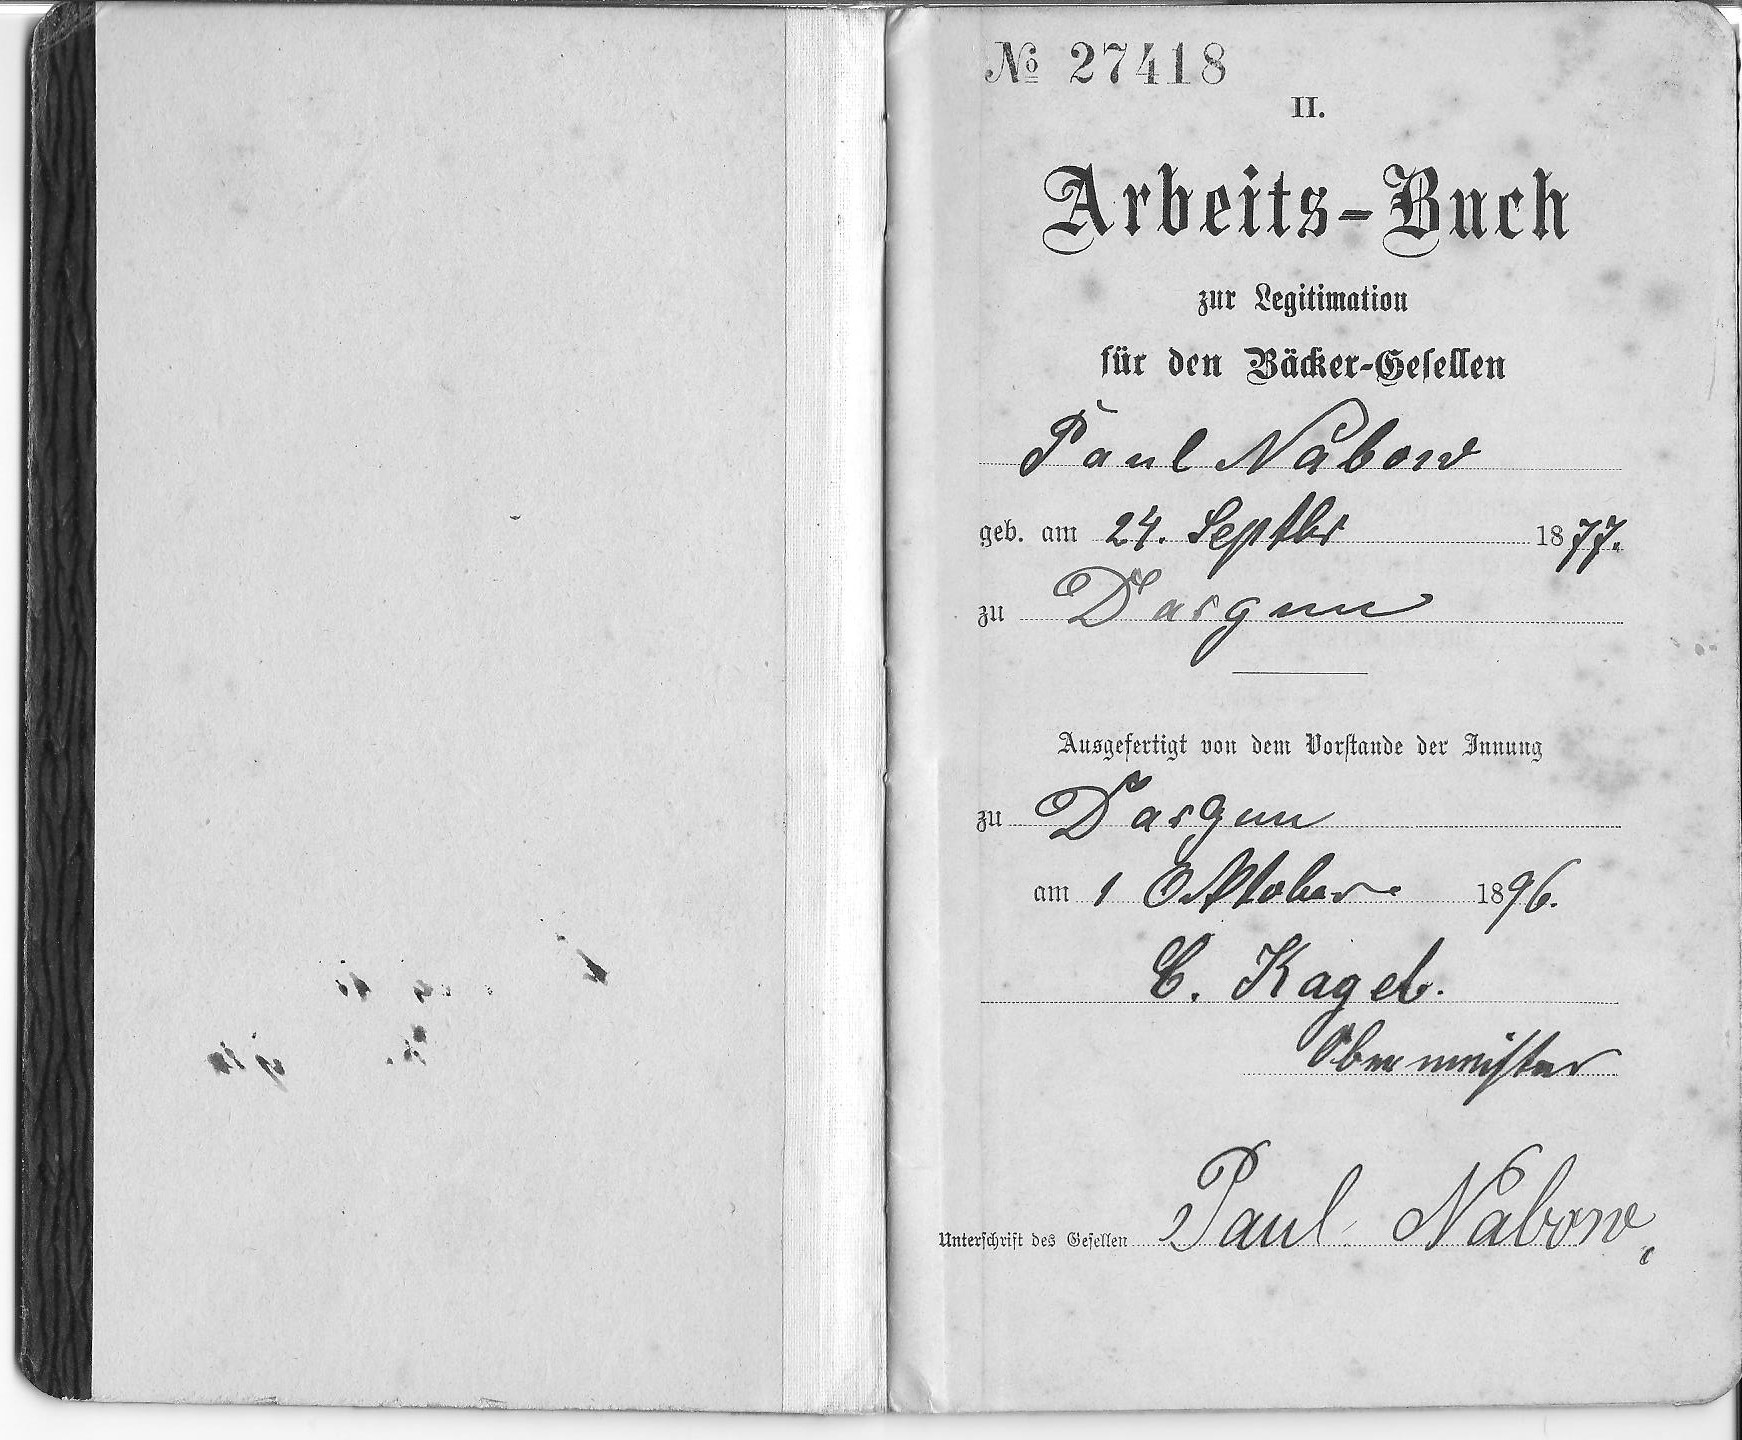 № 27418
II.
Arbeits-Buch
zur Legitimation
für den Bäcker-Gesellen
Paul Nabow
geb. am 24. Septbr 1877.
zu Dargun
Ausgefertigt von dem Vorstande der Innung
zu Dargun
am 1 Oktober 1896.
C. Kagel.
Obermeister
Unterschrift des Gesellen Paul Nabow.